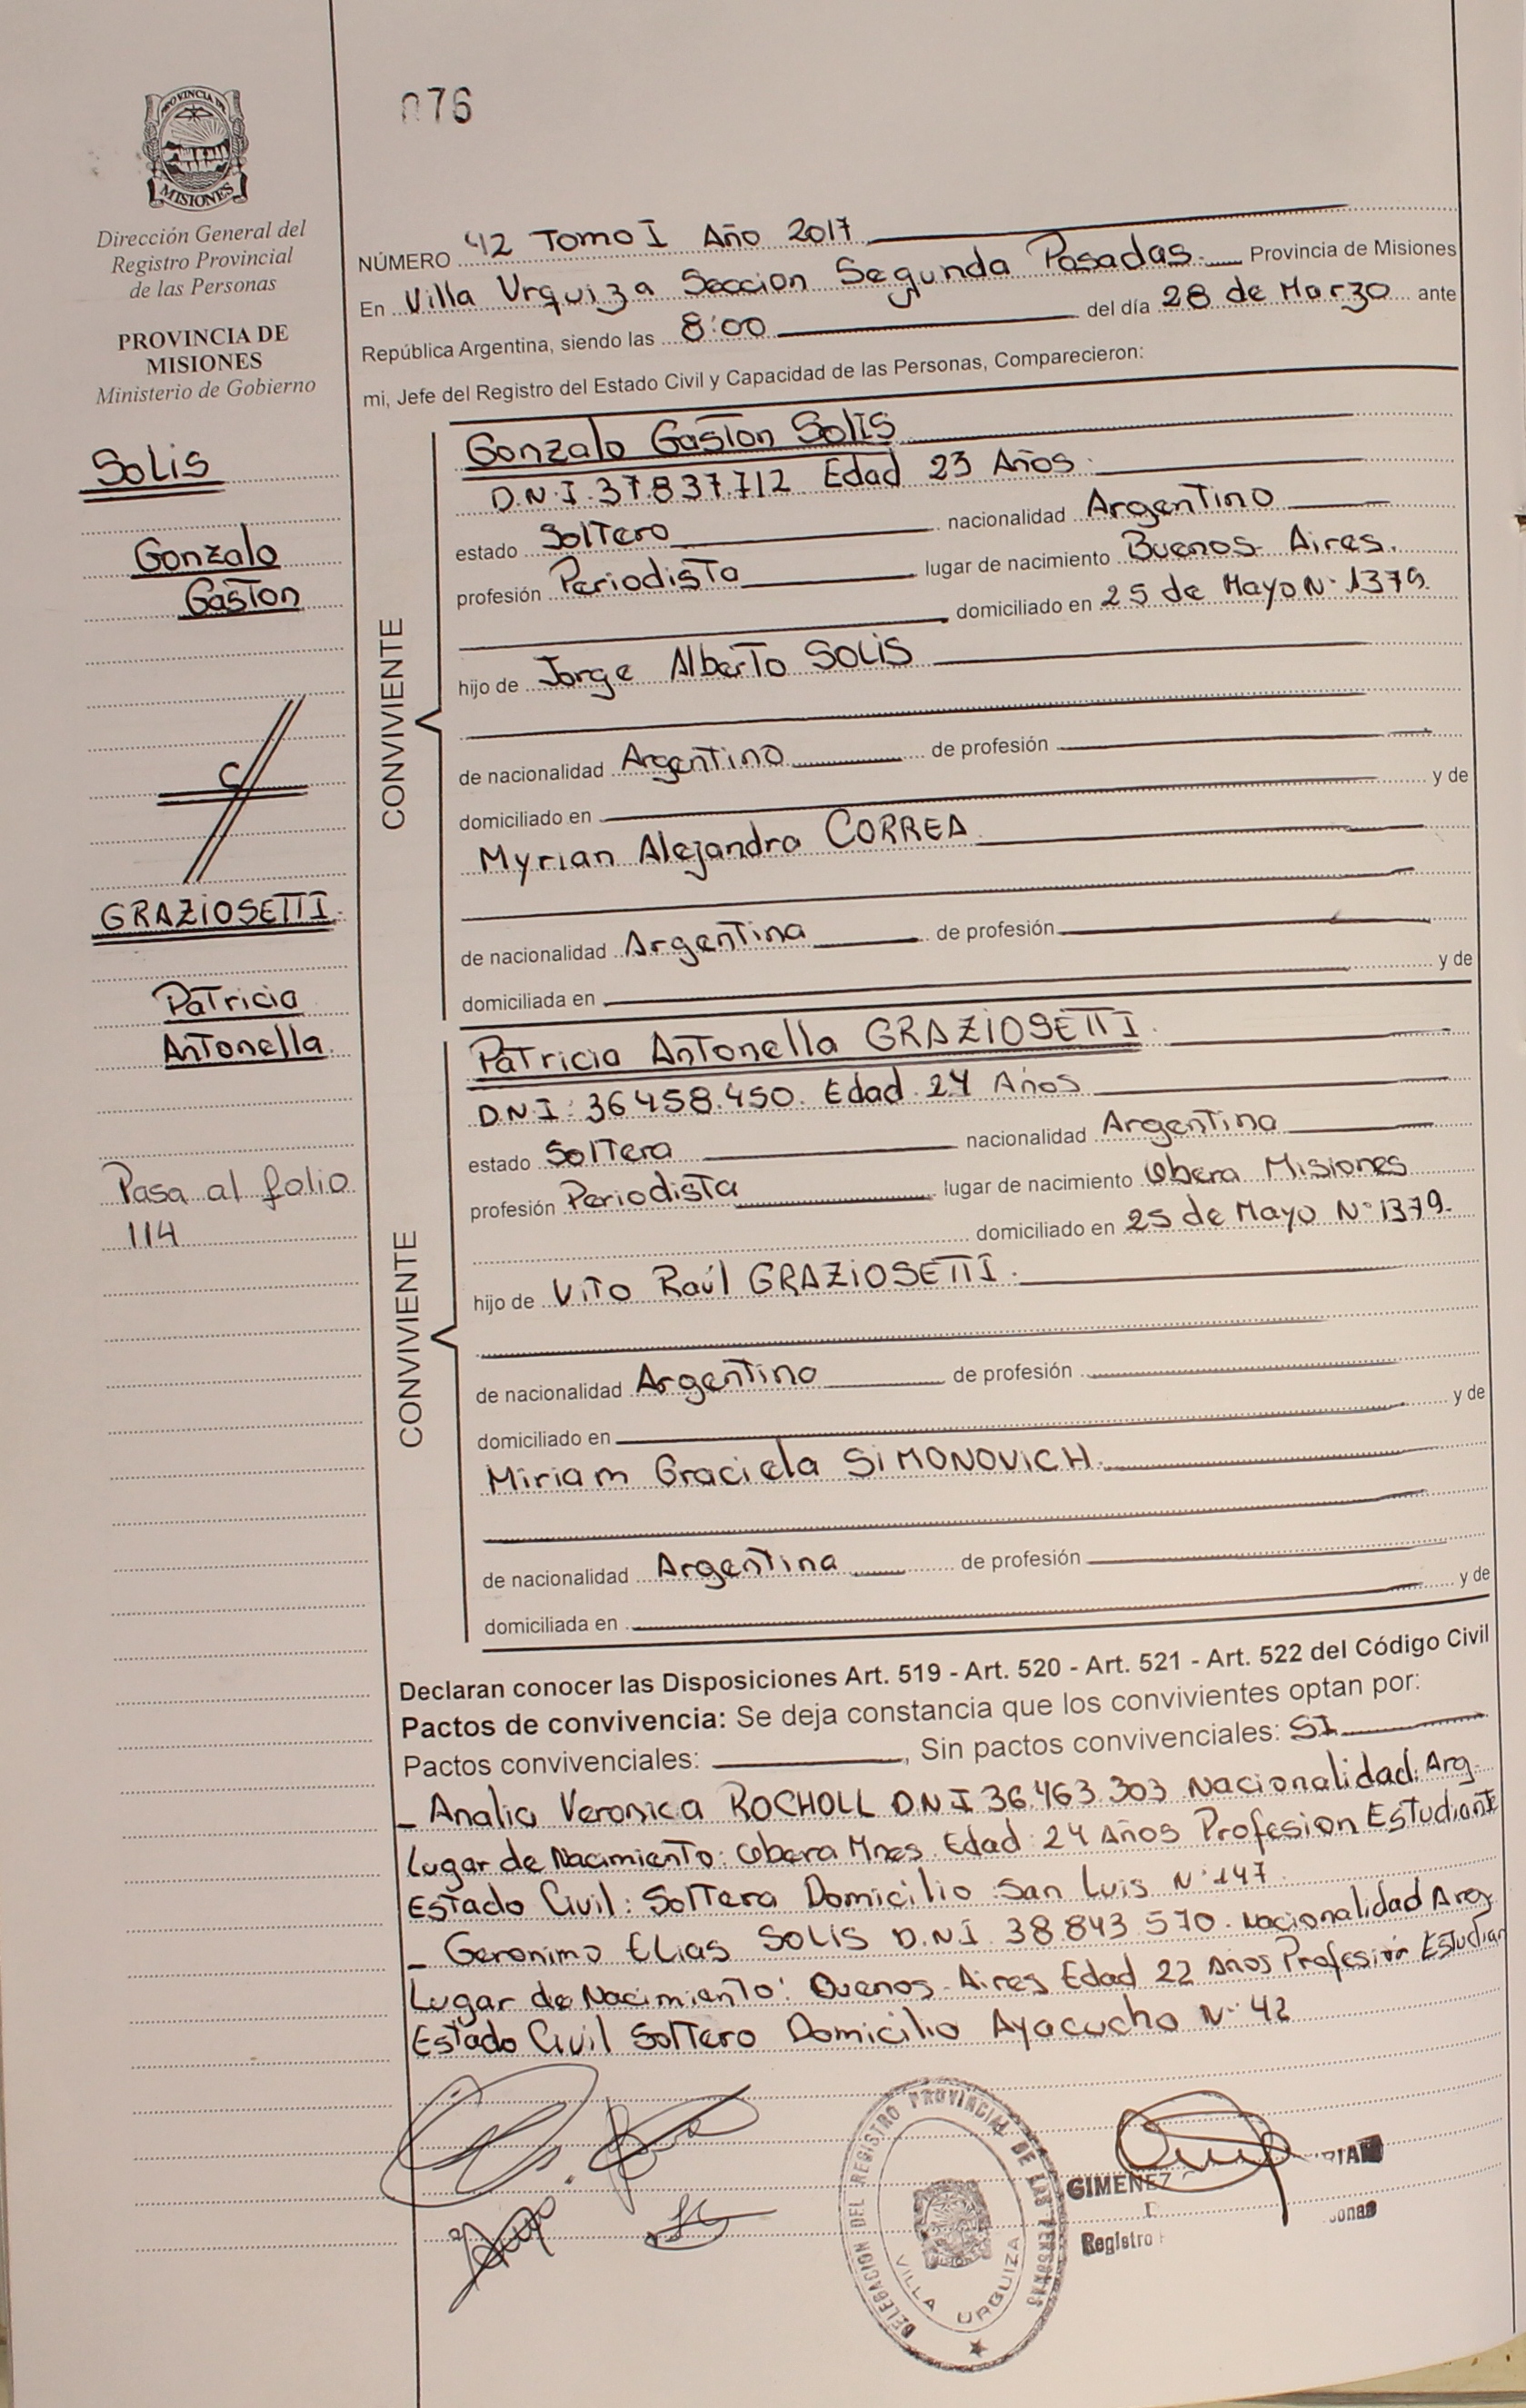 076
PROVINCIA DE
MISIONES
Dirección General del
Registro Provincial
de las Personas
PROVINCIA DE
MISIONES
Ministerio de Gobierno
SOLIS
Gonzalo
Gaston
C
GRAZIOSETTI
Patricia
Antonella
Pasa al folio
114
NÚMERO 42 Tomo I Año 2017
En Villa Urquiza Seccion Segunda Posadas. Provincia de Misiones
República Argentina, siendo las 8:00 del día 28 de Marzo ante
mi, Jefe del Registro del Estado Civil y Capacidad de las Personas, Comparecieron:
CONVIVIENTE
Gonzalo Gaston SOLIS
D.N.I. 37.837.712. Edad 23 Años.
estado Soltero nacionalidad Argentino
profesión Periodista lugar de nacimiento Buenos Aires.
domiciliado en 25 de Mayo N° 1379.
hijo de Jorge Alberto SOLIS
de nacionalidad Argentino de profesión
domiciliado en y de
Myrian Alejandra CORREA
de nacionalidad Argentina de profesión
domiciliada en y de
CONVIVIENTE
Patricia Antonella GRAZIOSETTI.
D.N.I: 36.458.450. Edad 24 Años
estado Soltera nacionalidad Argentina
profesión Periodista lugar de nacimiento Obera Misiones
domiciliado en 25 de Mayo N° 1379.
hijo de Vito Raúl GRAZIOSETTI.
de nacionalidad Argentino de profesión
domiciliado en y de
Miriam Graciela SIMONOVICH.
de nacionalidad Argentina de profesión
domiciliada en y de
Declaran conocer las Disposiciones Art. 519 - Art. 520 - Art. 521 - Art. 522 del Código Civil
Pactos de convivencia: Se deja constancia que los convivientes optan por:
Pactos convivenciales: , Sin pactos convivenciales: SI
- Analia Veronica ROCHOLL D.N.I 36.463.303 Nacionalidad: Arg.
Lugar de Nacimiento: Obera Mnes. Edad: 24 Años Profesion Estudiante
Estado Civil: Soltera Domicilio San Luis N° 147
- Geronimo Elias SOLIS D.N.I. 38.843.570. Nacionalidad Arg.
Lugar de Nacimiento: Buenos Aires Edad 22 Años Profesión Estudian
Estado Civil Soltero Domicilio Ayacucho N° 42
DELEGACION DEL REGISTRO PROVINCIAL DE LAS PERSONAS
VILLA URQUIZA
GIMENEZ
Registro